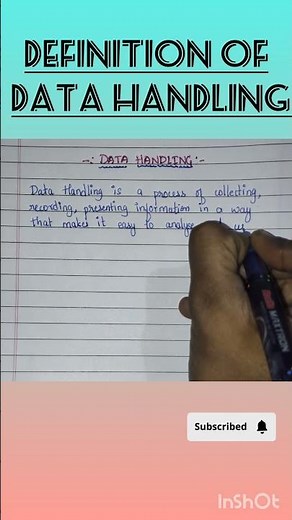 DEFINITION OF
DATA HANDLING
-: DATA HANDLING :-
Data Handling is a process of collecting,
recording, presenting information in a way
that makes it easy to analyse us
Subscribed
InShOt